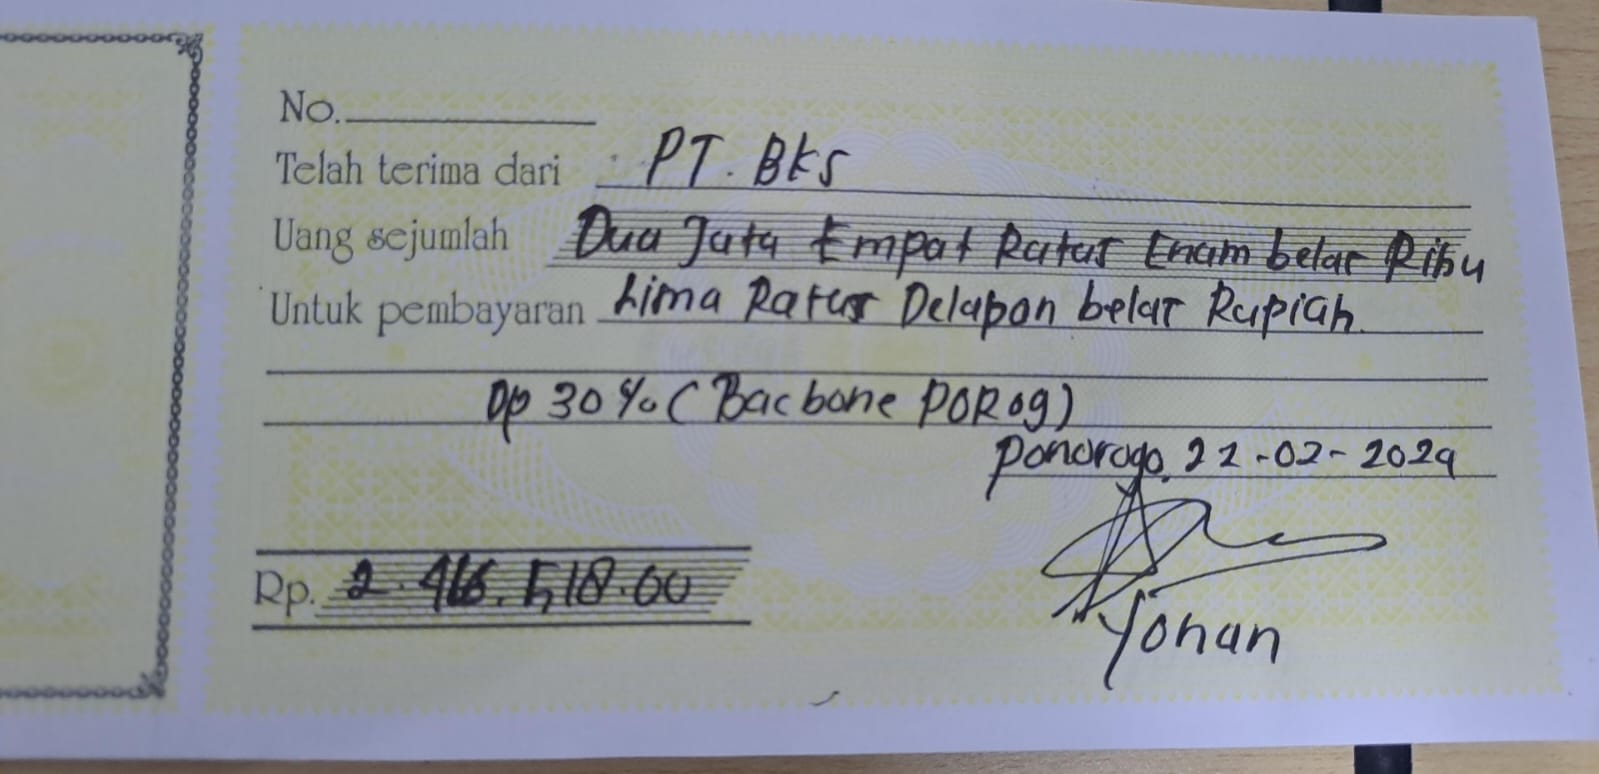 No.
Telah terima dari : PT. BKS
Uang sejumlah Dua Juta Empat Ratus Enam belas Ribu
Untuk pembayaran Lima Ratus Delapan belas Rupiah
Dp 30% (Bacbone POROG)
Ponorogo, 21-02-2024
Rp. 2.416.518.00
Yohan